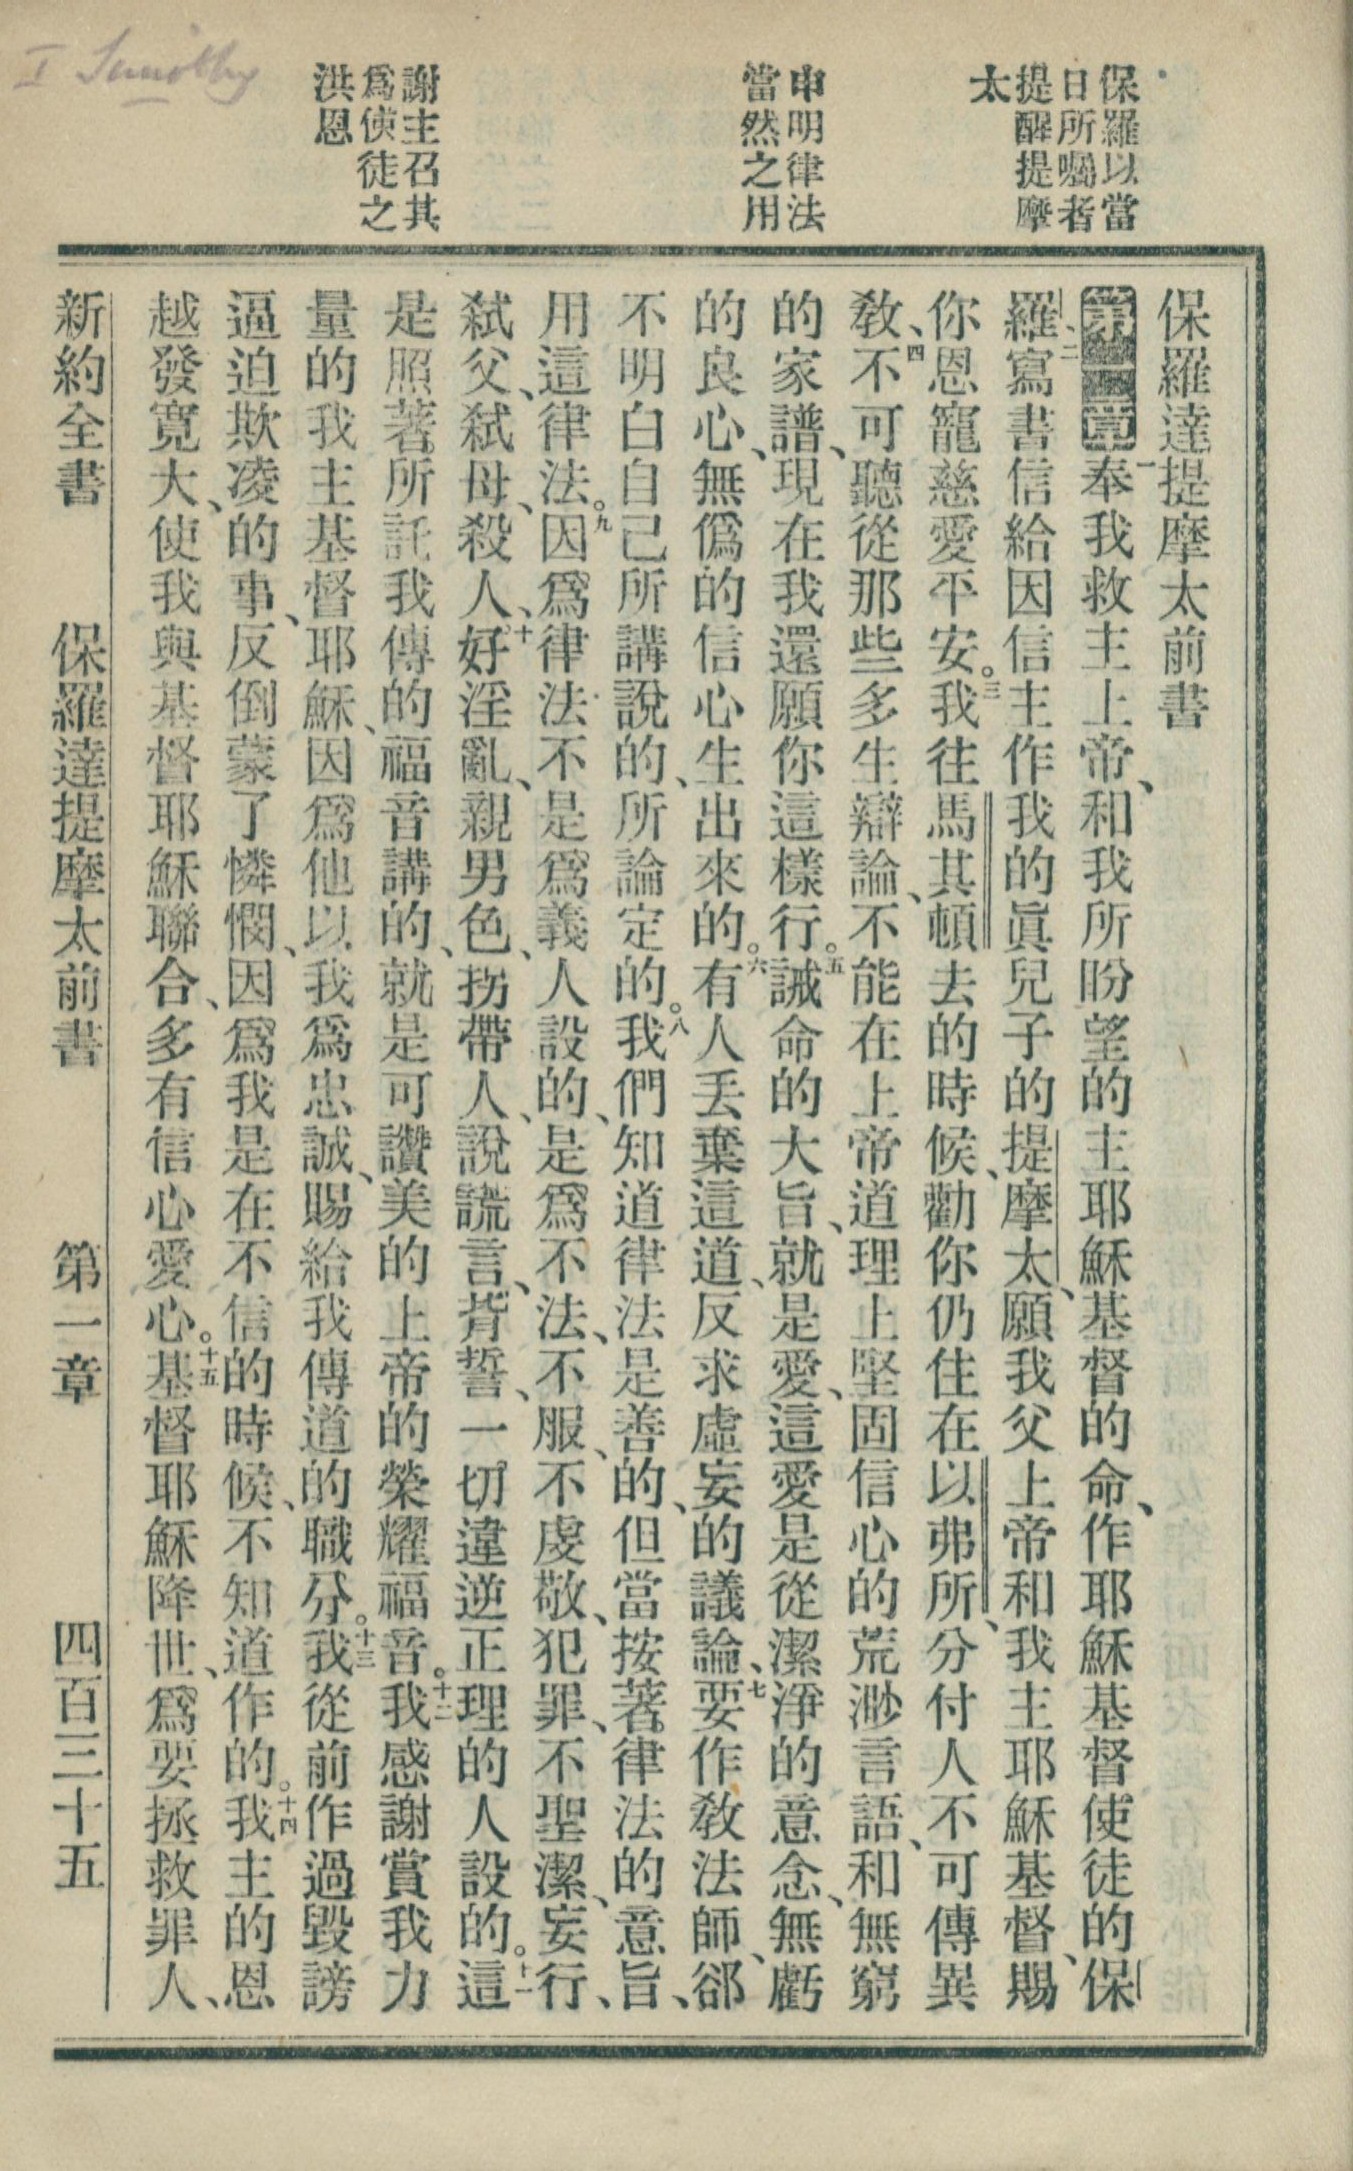 I Timothy
保羅以當
日所囑者
提醒提摩
太
申明律法
當然之用
謝主召其
爲使徒之
洪恩
保羅達提摩太前書
第一章一奉我救主上帝、和我所盼望的主耶穌基督的命、作耶穌基督使徒的保
羅、二寫書信給因信主作我的眞兒子的提摩太、願我父上帝和我主耶穌基督、賜
你恩寵慈愛平安。三我往馬其頓去的時候、勸你仍住在以弗所、分付人不可傳異
敎、四不可聽從那些多生辯論、不能在上帝道理上堅固信心的荒渺言語、和無窮
的家譜、現在我還願你這樣行。五誡命的大旨、就是愛、這愛是從潔淨的意念、無虧
的良心、無僞的信心生出來的。六有人丟棄這道、反求虛妄的議論、七要作敎法師、郤
不明白自己所講說的、所論定的。八我們知道律法是善的、但當按著律法的意旨、
用這律法。九因爲律法不是爲義人設的、是爲不法、不服、不虔敬、犯罪、不聖潔、妄行、
弒父、弒母、殺人、十好淫亂、親男色、拐帶人、說謊言、背誓、一切違逆正理的人設的。十一這
是照著所託我傳的福音講的、就是可讚美的上帝的榮耀福音。十二我感謝賞我力
量的我主基督耶穌、因爲他以我爲忠誠、賜給我傳道的職分。十三我從前作過毀謗
逼迫欺凌的事、反倒蒙了憐憫、因爲我是在不信的時候、不知道作的。十四我主的恩
越發寬大、使我與基督耶穌聯合、多有信心愛心。十五基督耶穌降世、爲要拯救罪人、
新約全書　保羅達提摩太前書　第一章　四百三十五